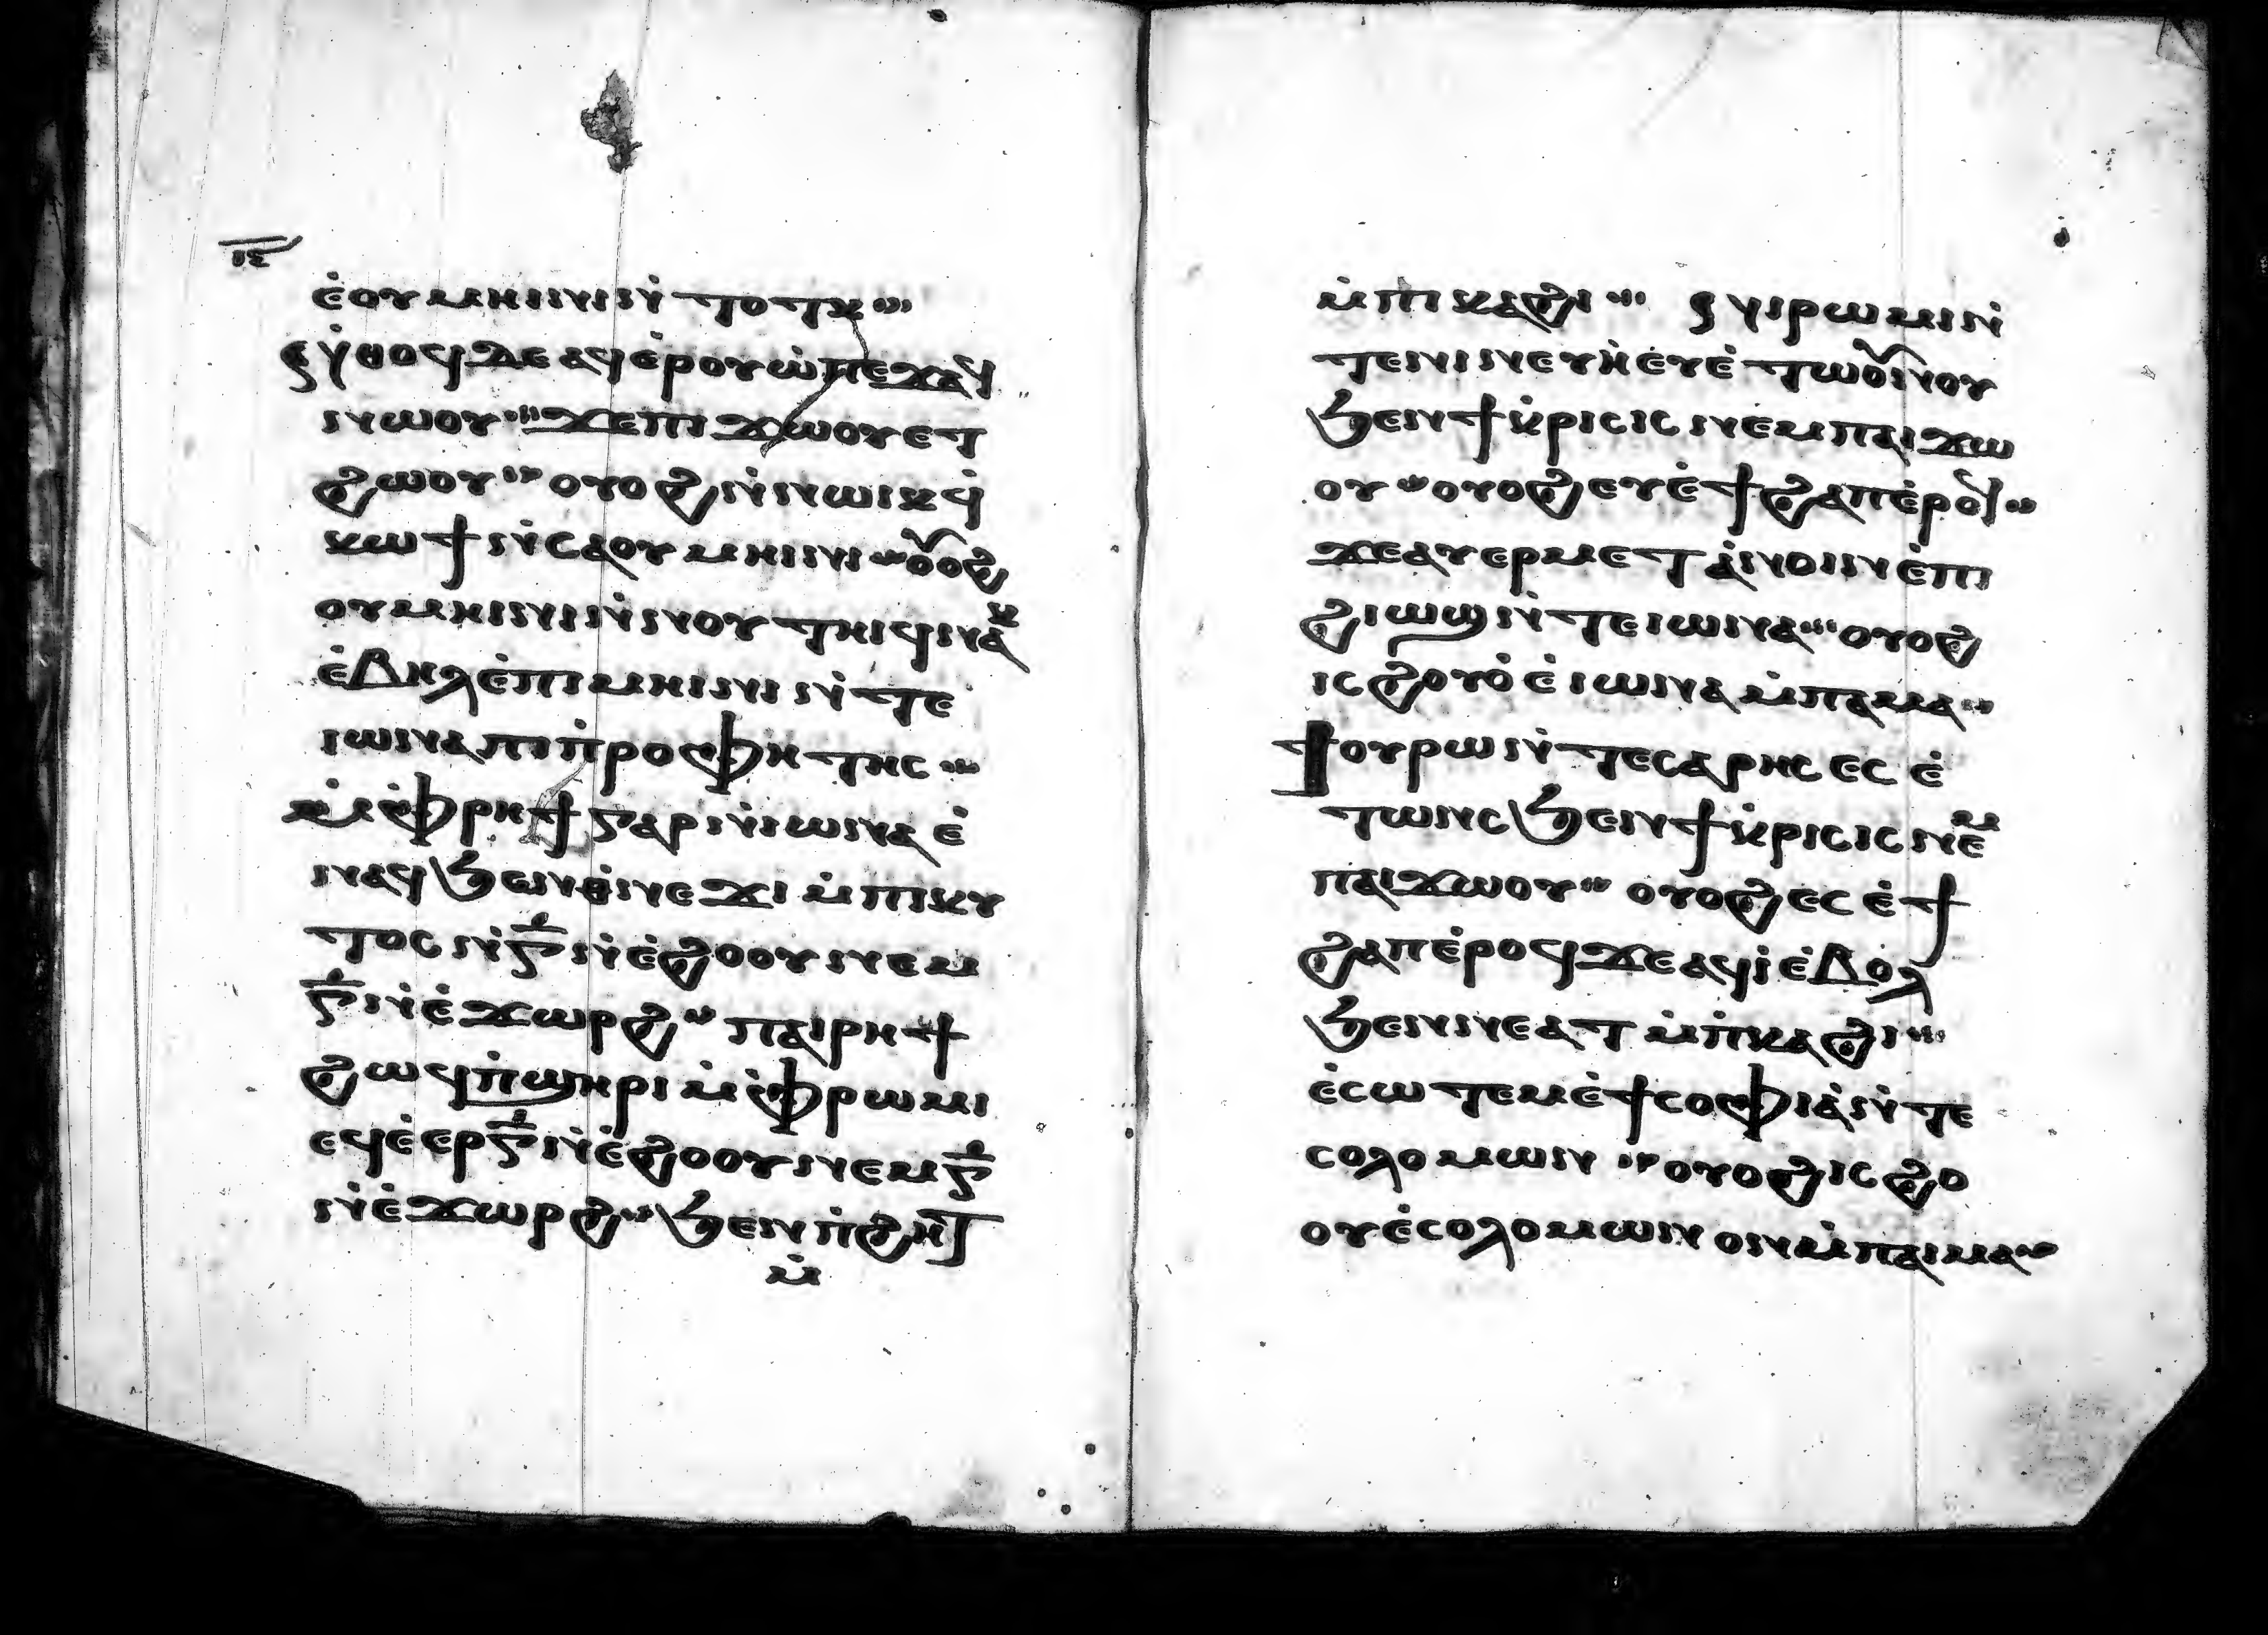 ⲓⲉ
ⲉ̇ⲟⲩⲙⲏⲓⲛⲓⲛ̇ⲧⲟⲧⲕ
ⲛ̇ⲑⲟϥⲇⲉⲁϥⲉ̇ⲣⲟⲩⲱ̇ⲡⲉϫⲁϥ
ⲛⲱⲟⲩ ϫⲉⲡⲓϫⲱⲟⲩⲉⲧ
ϩⲱⲟⲩ ⲟⲩⲟϩⲛ̇ⲛⲱⲓⲕϥ̇
ⲕⲱϯⲛ̇ⲥⲁⲟⲩⲙⲏⲓⲛⲓ ⲟⲩⲟϩ
ⲟⲩⲙⲏⲓⲛⲓⲛ̇ⲛⲟⲩⲧⲏⲓϥⲛⲁⲕ
ⲉ̇ⲃⲏⲗⲉ̇ⲡⲓⲙⲏⲓⲛⲓⲛ̇ⲧⲉ
ⲓⲱⲛⲁⲡⲓⲡ̇ⲣⲟⲫⲏⲧⲏⲥ
ⲙ̇ⲫ̇ⲣⲏϯⲅⲁⲣⲛ̇ⲓⲱⲛⲁⲉ̇
ⲛⲁϥϧⲉⲛⲑ̇ⲛⲉϫⲓⲙ̇ⲡⲓⲕⲩ
ⲧⲟⲥⲛ̇ⲅ̅ⲛ̇ⲉ̇ϩⲟⲟⲩⲛⲉⲙ
ⲅ̅ⲛ̇ⲉ̇ϫⲱⲣϩ ⲡⲁⲓⲣⲏϯ
ϩⲱϥⲡ̇ϣⲏⲣⲓⲙ̇ⲫ̇ⲣⲱⲙⲓ
ⲉϥⲉ̇ⲉⲣⲅ̅ⲛ̇ⲉ̇ϩⲟⲟⲩⲛⲉⲙⲅ̅
ⲛ̇ⲉ̇ϫⲱⲣϩ ϧⲉⲛⲡ̇ϩⲏⲧ
ⲙ̇
ⲙ̇ⲡⲓⲕⲁϩⲓ ⲛⲓⲣⲱⲙⲓⲛ̇
ⲧⲉⲛⲓⲛⲉⲩⲏ̇ⲉⲩⲉ̇ⲧⲱⲟⲩⲛⲟⲩ
ϧⲉⲛϯⲕ̇ⲣⲓⲥⲓⲥⲛⲉⲙⲡⲁⲓϫⲱ
ⲟⲩ ⲟⲩⲟϩⲉⲩⲉ̇ϯϩⲁⲡⲉ̇ⲣⲟϥ
ϫⲉⲁⲩⲉⲣⲙⲉⲧⲁ̇ⲛⲟⲓⲛⲉ̇ⲡⲓ
ϩⲓⲱⲓϣⲛ̇ⲧⲉⲓⲱⲛⲁ ⲟⲩⲟϩ
ⲓⲥϩⲟⲩⲟ̇ⲉ̇ⲓⲱⲛⲁⲙ̇ⲡⲁⲙⲁ
ϯⲟⲩⲣⲱⲛ̇ⲧⲉⲥⲁⲣⲏⲥⲉⲥⲉ̇
ⲧⲱⲛⲥϧⲉⲛϯⲕ̇ⲣⲓⲥⲓⲥⲛⲉⲙ
ⲡⲁⲓϫⲱⲟⲩ ⲟⲩⲟϩⲉⲥⲉ̇ϯ
ϩⲁⲡⲉ̇ⲣⲟϥϫⲉⲁϥⲓ̇ⲉ̇ⲃⲟⲗ
ϧⲉⲛⲛⲉⲁⲧⲙ̇ⲡ̇ⲕⲁϩⲓ
ⲉ̇ⲥⲱⲧⲉⲙⲉ̇ϯⲥⲟⲫⲓⲁ̇ⲛ̇ⲧⲉ
ⲥⲟⲗⲟⲙⲱⲛ ⲟⲩⲟϩⲓⲥϩⲟ
ⲟⲩⲉ̇ⲥⲟⲗⲟⲙⲱⲛⲟⲛⲙ̇ⲡⲁⲓⲙⲁ